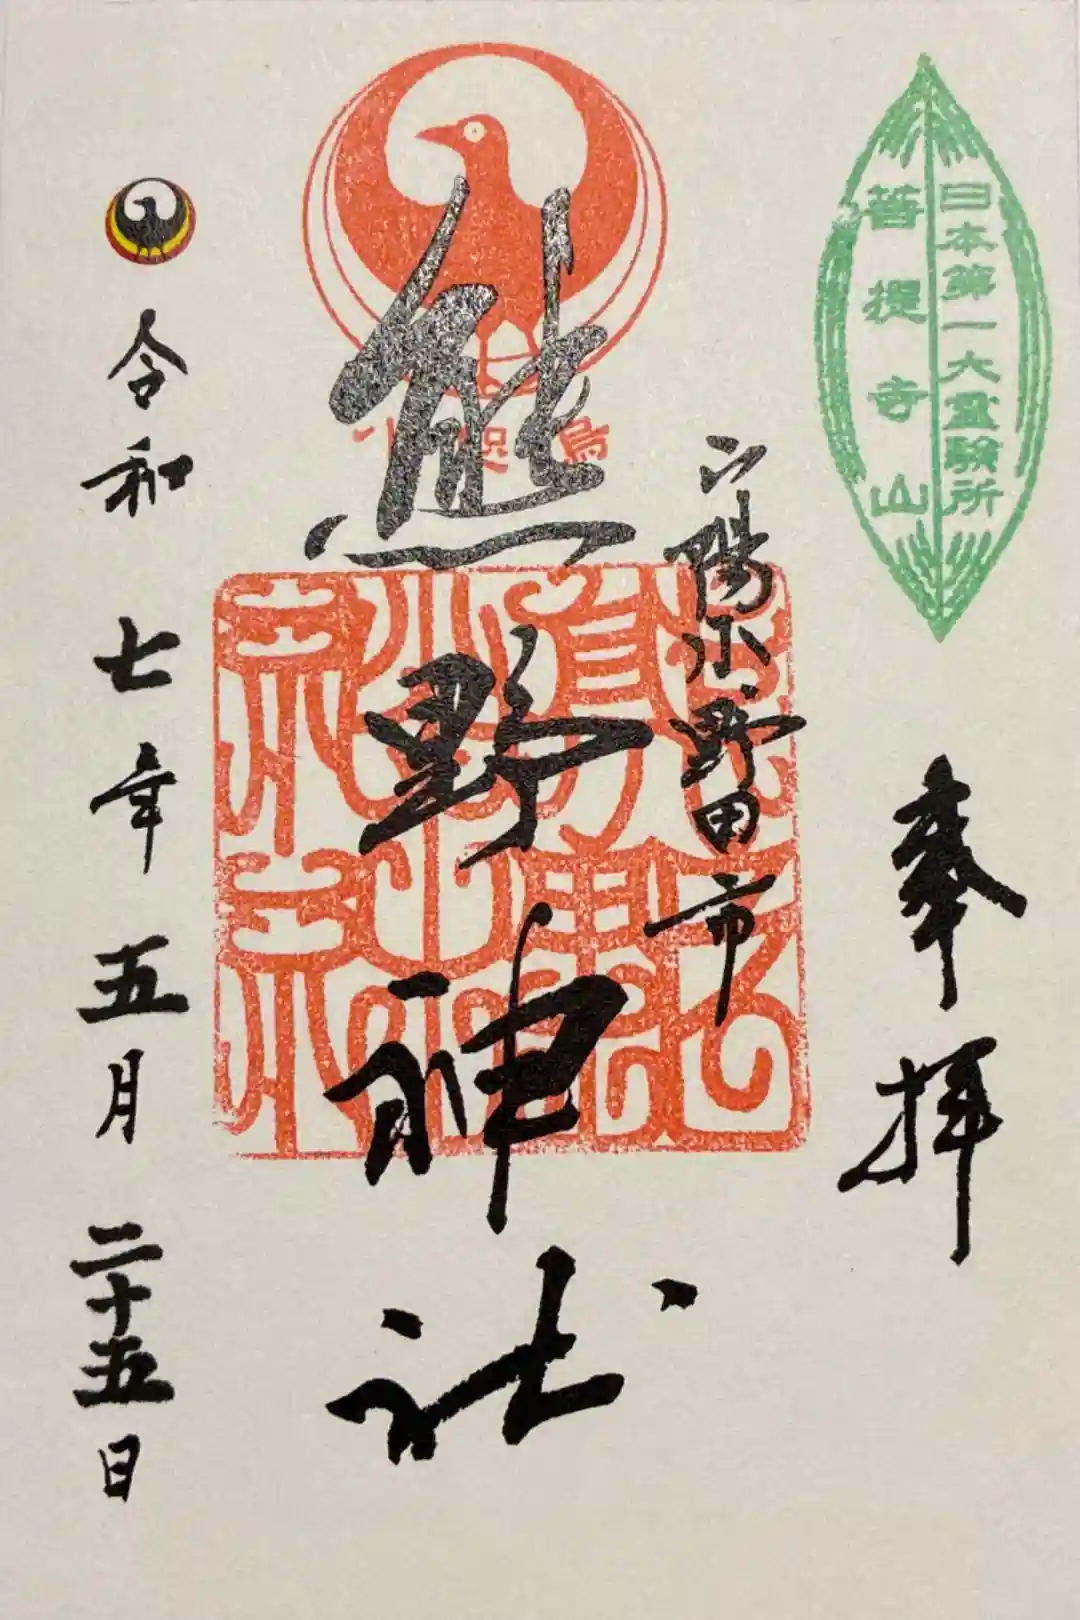 日本第一大霊験所
菩提寺山
奉拝
山陽小野田市
八咫烏
熊野神社
令和七年五月二十五日